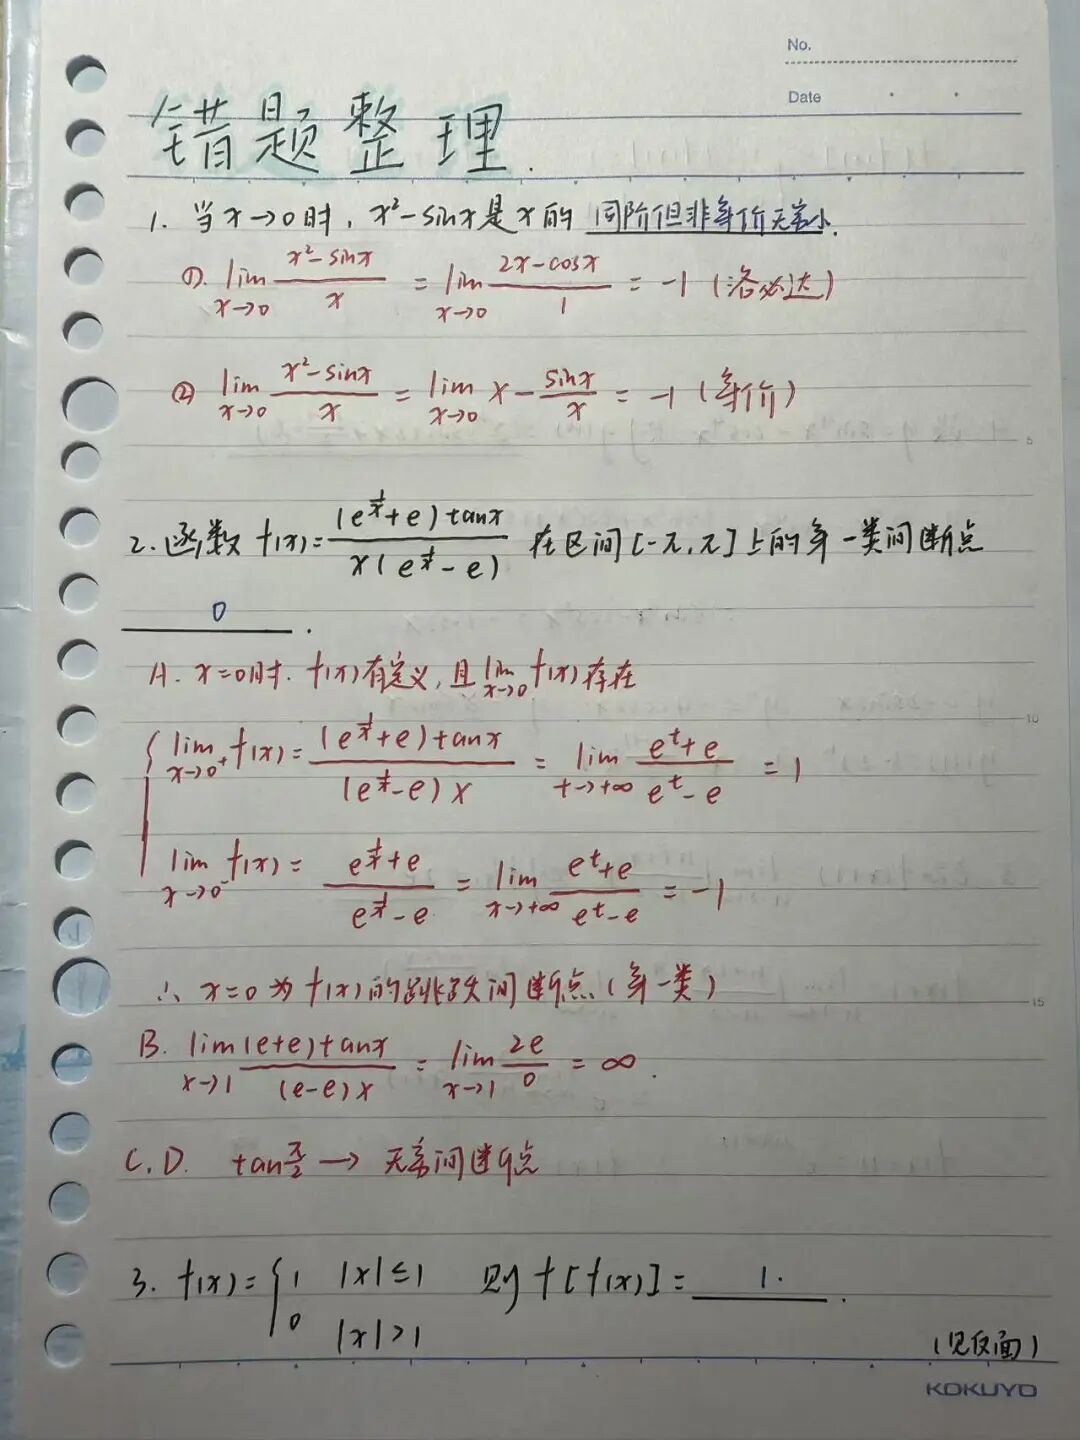 No.
Date
错题整理.
1. 当x→0时, x²-sinx是x的 同阶但非等价无穷小.
①. lim x→0 (x²-sinx)/x = lim x→0 (2x-cosx)/1 = -1 (洛必达)
② lim x→0 (x²-sinx)/x = lim x→0 x - sinx/x = -1 (等价)
5
2. 函数 f(x)= (e^(1/x)+e)tanx / x(e^(1/x)-e) 在区间[-π,π]上的第一类间断点
0 .
A. x=0时. f(x)有定义, 且lim x→0 f(x)存在
10
{ lim x→0⁺ f(x)= (e^(1/x)+e)tanx / (e^(1/x)-e)x = lim t→+∞ (e^t+e)/(e^t-e) = 1
lim x→0⁻ f(x)= (e^(1/x)+e)/(e^(1/x)-e) = lim x→+∞ (e^t+e)/(e^t-e) = -1
∴ x=0为f(x)的跳跃间断点(第一类)
15
B. lim x→1 (e+e)tanx / (e-e)x = lim x→1 2e/0 = ∞.
C.D. tan π/2 → 无穷间断点
3. f(x)= { 1 |x|≤1 则 f[f(x)]= 1. .
0 |x|>1
(见反面)
KOKUYO